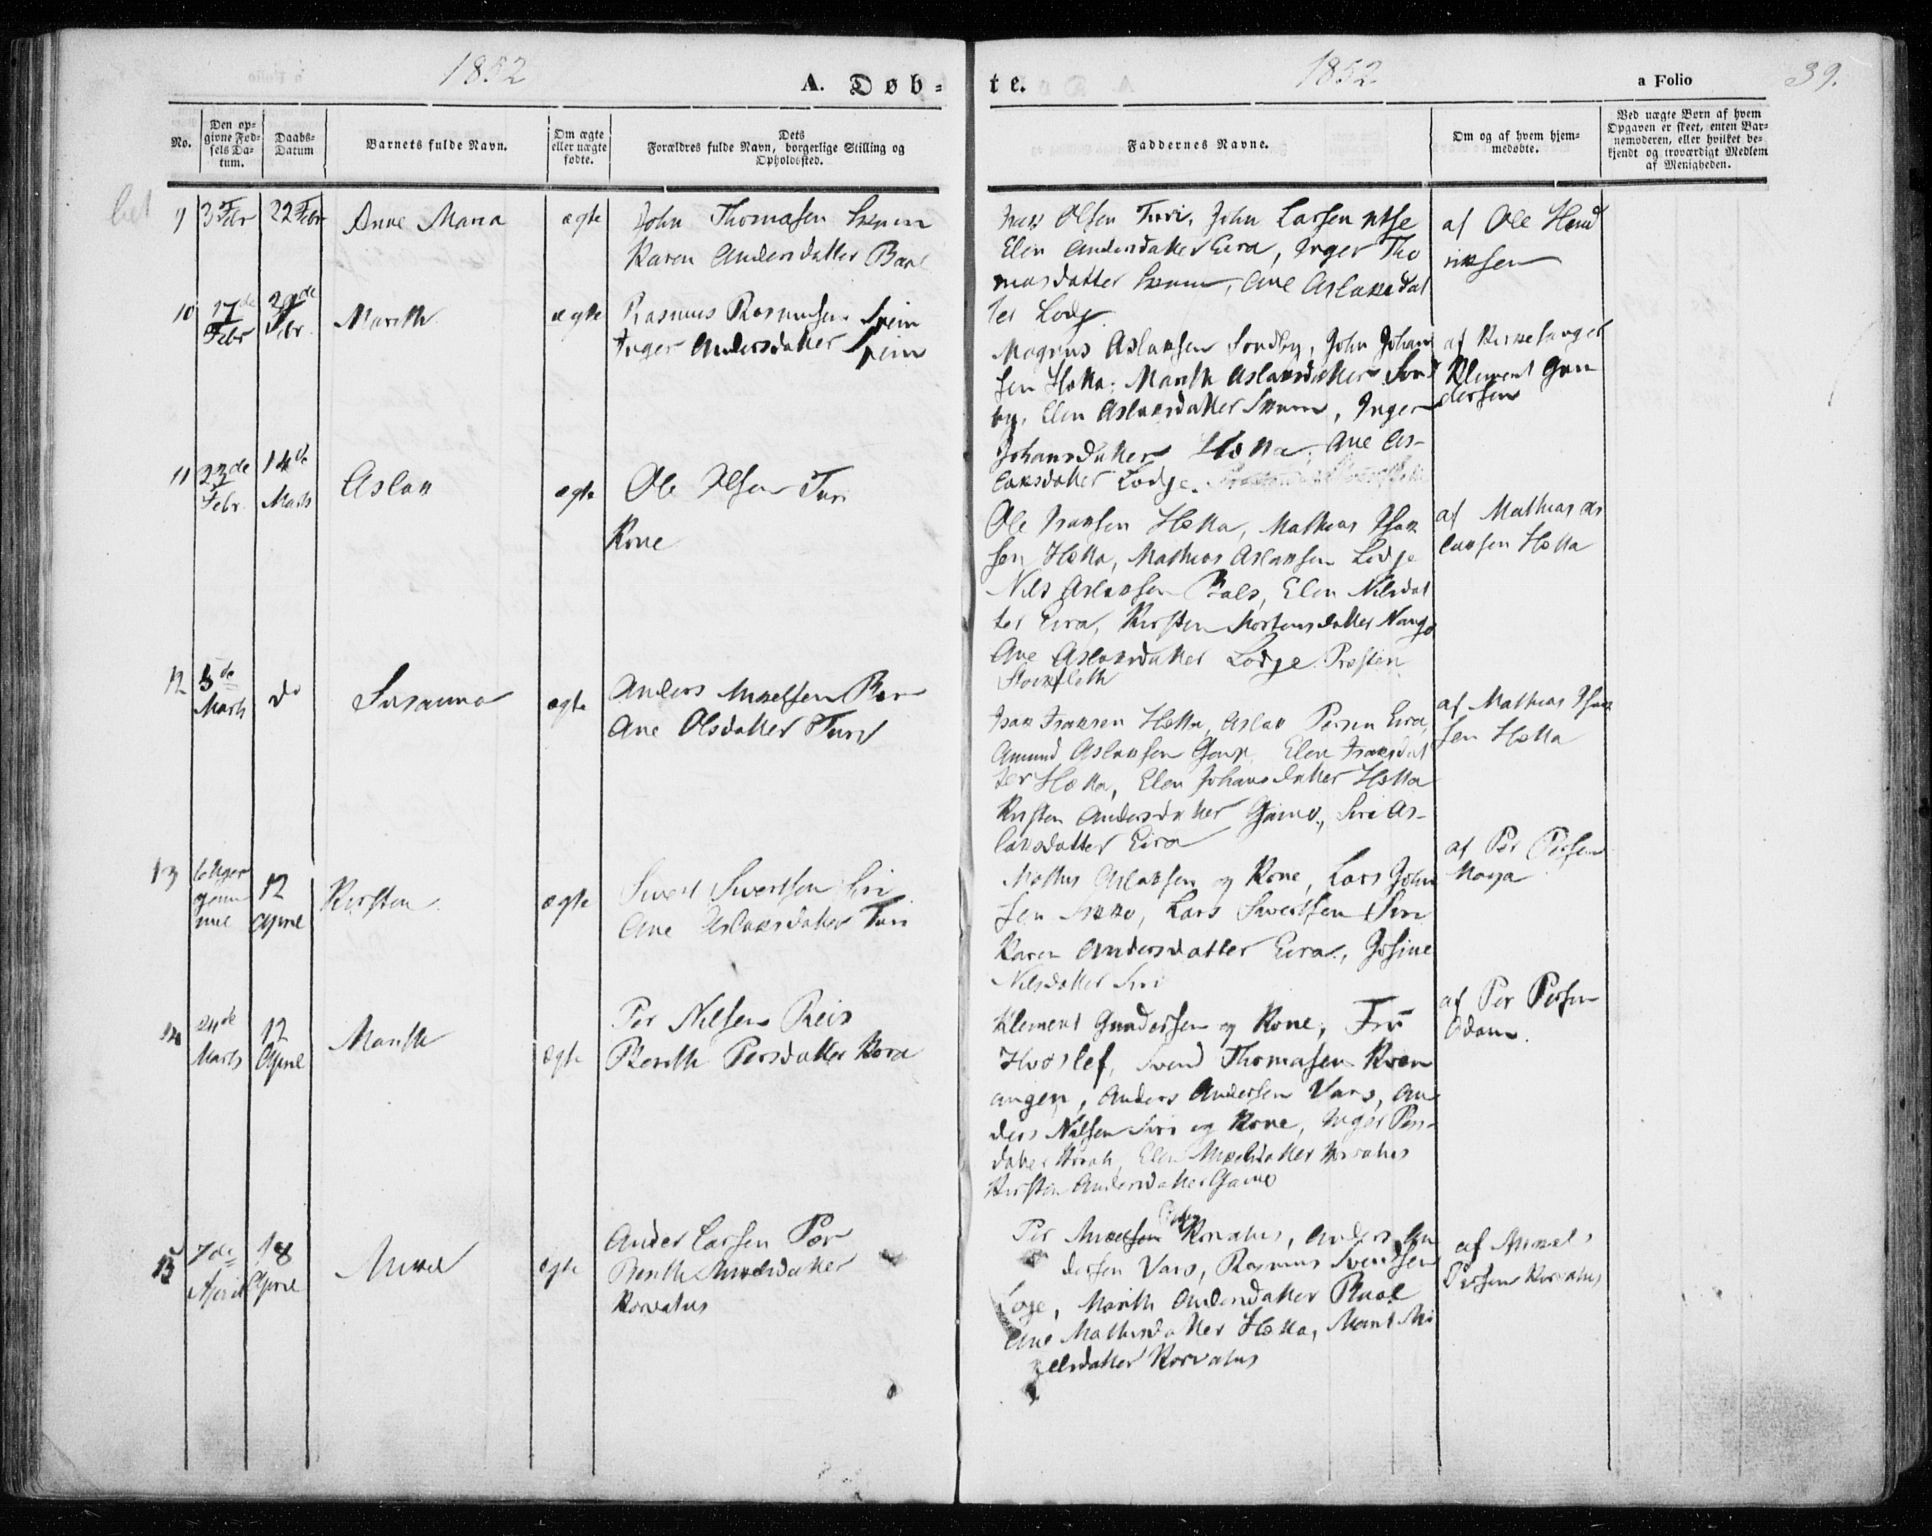 1852
A. Døb-
te.
1852
a Folio
39.
No.
Den op-
givne Fød-
sels Da-
tum.
Daabs-
Datum
Barnets fulde Navn.
Om ægte
eller uægte
fødte.
Dets
Forældres fulde Navn, borgerlige Stilling og
Opholdssted.
Faddernes Navne.
Om og af hvem hjem-
medøbte.
Ved uægte Børn af hvem
Opgaven er skeet, enten Bar-
nemoderen, eller hvilket be-
kjendt og troværdigt Medlem
af Menigheden.
9
3 Febr
22 Febr
Anne Maria
ægte
John Thomasen Skum
Karen Andersdatter Baal
Isak Olsen Turi, John Larsen
Elen Andersdatter Eira, Inger Tho
masdatter Skum, Ane Aslaksdat
ter Lodje
af Ole Hend
riksen
10
17de
Febr
29de
Febr.
Marith
ægte
Rasmus Rasmusen Spein
Inger Andersdatter Spein
Magnus Aslaksen Sondby, John Johan
sen Hætta, Marith Aslaksdatter Sond
by, Elen Aslaksdatter Skum, Inger
Johansdatter Hætta, Ane As-
laksdatter Lodje.
af Kirkesanger
Klement Gun
dersen
11
23de
Febr.
14de
Marts
Aslak
ægte
Ole Olsen Turi
Kone
Ole Isaksen Hætta, Mathias Isak
sen Hætta, Mathias Aslaksen Lodje
Nils Aslaksen Bals, Elen Nilsdat
ter Eira, Kirsten Mortensdatter Nango
Ane Aslaksdatter Lodje, Præsten
Stockfleth
af Mathias As
laksen Hætta
12
5de
Marts
do
Susanna
ægte
Anders Mikelsen Bær
Ane Olsdatter Turi
Isak Isaksen Hætta, Aslak Persen Eira,
Amund Aslaksen Gaup, Elen Isaksdat
ter Hætta, Elen Johansdatter Hætta
Kirsten Andersdatter Gaino, Siri As-
laksdatter Eira
af Mathias Isak
sen Hætta
13
12
April
Kirsten
ægte
Sivert Sivertsen Siri
Ane Aslaksdatter Turi
Mathis Aslaksen og Kone, Lars John
sen Sikko, Lars Sivertsen Siri
Karen Andersdatter Eira, Josine
Nilsdatter Siri
af Per Persen
Noya
14
24de
Marts
12
April
Marith
ægte
Per Nilsen Reis
Berith Persdatter Kora
Klement Gundersen og Kone, Fru
Hvoslef, Svend Thomasen Kven
angen, Anders Andersen Vars, An
ders Nilsen Siri og Kone, Inger Pers-
datter, Elen Mikelsdatter Korvatus
Kirsten Andersdatter Gaino
af Per Persen
Adam.
15
7de
April
18
April
Mikel
ægte
Ander Larsen Pær
Berith Mikelsdatter
Korvatus
Per Mikelsen Korvatus, Anders An
dersen Vars, Rasmus Svendsen
Loge, Marith Andersdatter Baal
Ane Mathisdatter Hætta, Marit Mi
kelsdatter Korvatus
af Mikel
Persen Korvatus